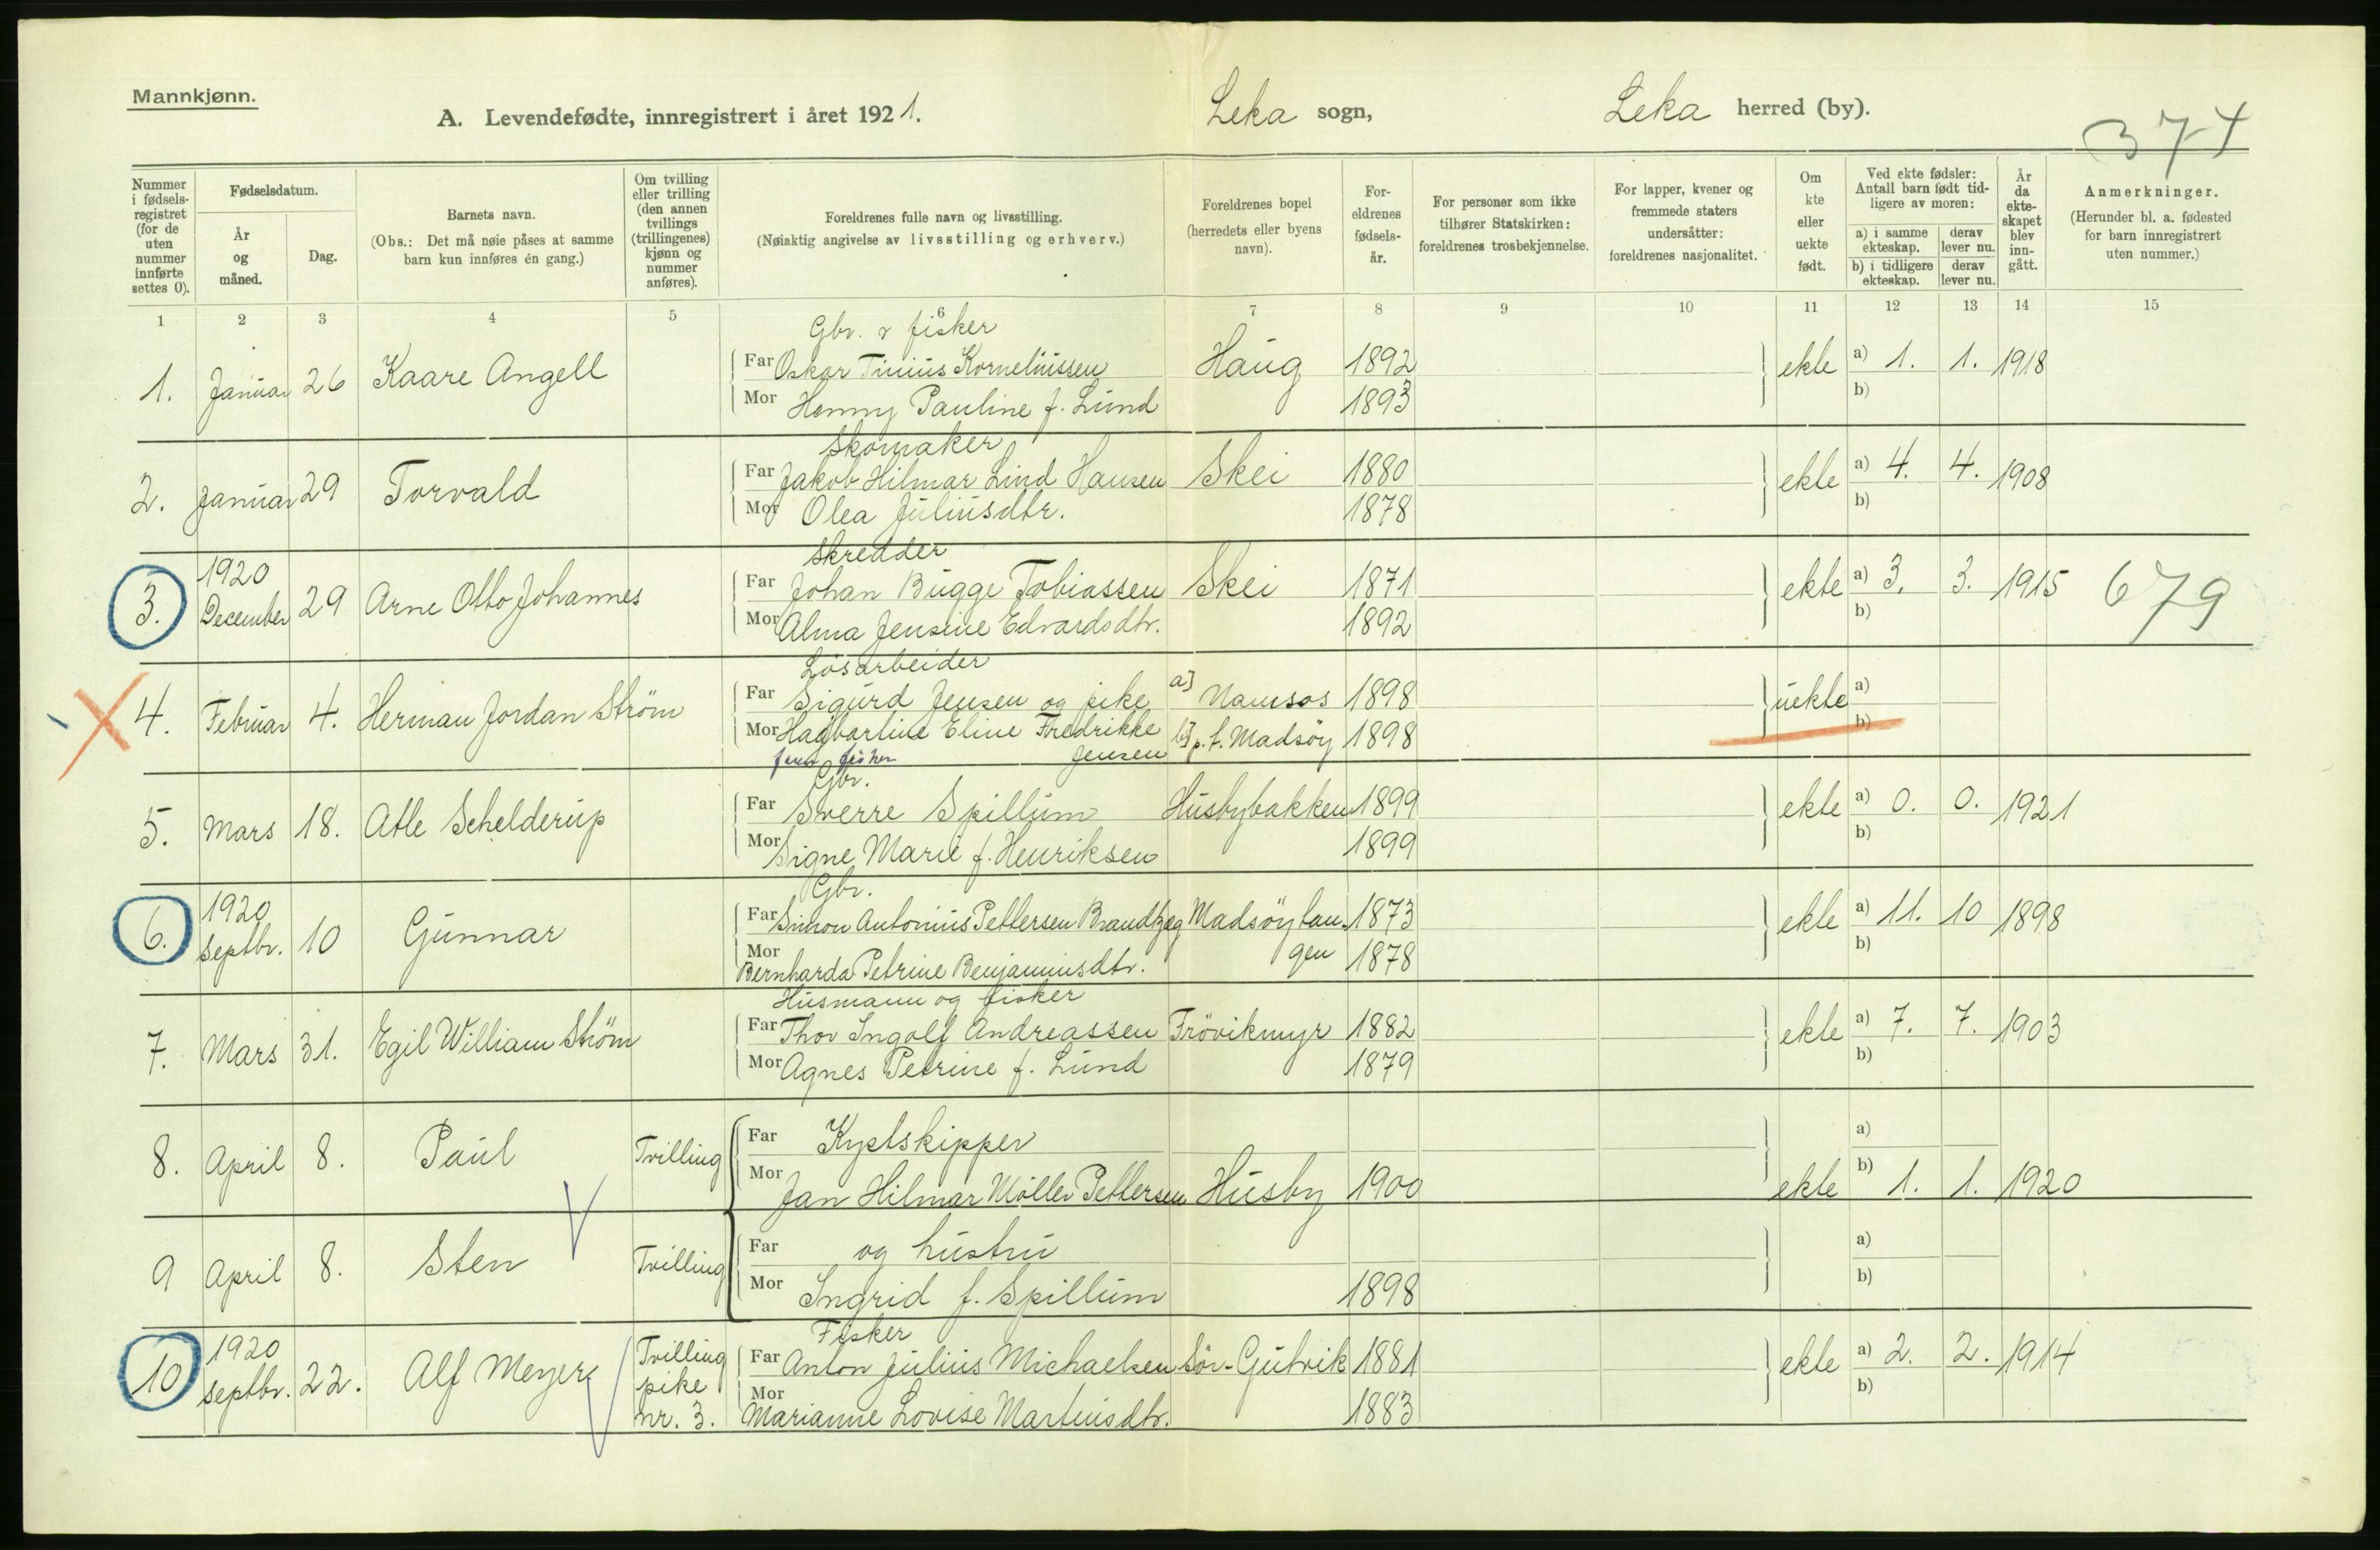 Mannkjønn.
A. Levendefødte, innregistrert i året 1921.
Leka sogn, Leka herred (by).
374
Nummer i fødselsregistret (for de uten nummer innførte settes 0).
Fødselsdatum.
År og måned.
Dag.
Barnets navn.
(Obs.: Det må nøie påses at samme barn kun innføres én gang.)
Om tvilling eller trilling (den annen tvillings (trillingenes) kjønn og nummer anføres).
Foreldrenes fulle navn og livsstilling.
(Nøiaktig angivelse av livsstilling og erhverv.)
Foreldrenes bopel (herredets eller byens navn).
Foreldrenes fødselsår.
For personer som ikke tilhører Statskirken: foreldrenes trosbekjennelse.
For lapper, kvener og fremmede staters undersåtter: foreldrenes nasjonalitet.
Om kte eller uekte født.
Ved ekte fødsler: Antall barn født tidligere av moren:
a) i samme ekteskap. derav lever nu.
b) i tidligere ekteskap. derav lever nu.
År da ekteskapet blev inngått.
Anmerkninger.
(Herunder bl. a. fødested for barn innregistrert uten nummer.)
1 2 3 4 5 6 7 8 9 10 11 12 13 14 15
Gbr. & fisker
1. Januar 26 Kaare Angell Far Oskar Tinius Korneliussen Haug 1892 ekte a) 1. 1. 1918
Mor Henny Pauline f. Lund 1893 b)
Skomaker
2. Januar 29 Torvald Far Jakob Hilmar Lind Hansen Skei 1880 ekte a) 4. 4. 1908
Mor Olea Juliusdtr. 1878 b)
Skredder
3. 1920 December 29 Arne Otto Johannes Far Johan Bugge Tobiassen Skei 1871 ekte a) 3. 3. 1915 679
Mor Alma Jensine Edvardsdtr. 1892 b)
Lösarbeider
4. Februar 4. Herman Jordan Ström Far Sigurd Jensen og pike a] Namsos 1898 uekte a)
Mor Hagbartine Eline Fredrikke b] p.t. Madsöy 1898 b)
fisker Jensen
Gbr.
5. Mars 18. Atle Schelderup Far Sverre Spillum Husbybakken 1899 ekte a) 0. 0. 1921
Mor Signe Marie f. Henriksen 1899 b)
Gbr.
6. 1920 Septbr. 10 Gunnar Far Simon Antonius Pettersen Brandtzæg Madsöytan- 1873 ekte a) 11. 10 1898
Mor Bernharda Petrine Benjaminsdtr. gen 1878 b)
Husmann og fisker
7. Mars 31. Egil William Ström Far Thor Ingolf Andreassen Frövikmyr 1882 ekte a) 7. 7. 1903
Mor Agnes Petrine f. Lund 1879 b)
8. April 8. Paul Tvilling Far Kyptskipper a)
Mor Jan Hilmar Möller Pettersen Husby 1900 ekte b) 1. 1. 1920
9 April 8. Sten Tvilling Far og hustru a)
Mor Ingrid f. Spillum 1898 b)
Fisker
10 1920 Septbr. 22. Alf Meyer Tvilling pike nr. 3. Far Anton Julius Michaelsen Sör-Gutvik 1881 ekte a) 2. 2. 1914
Mor Marianne Lovise Martinsdtr. 1883 b)